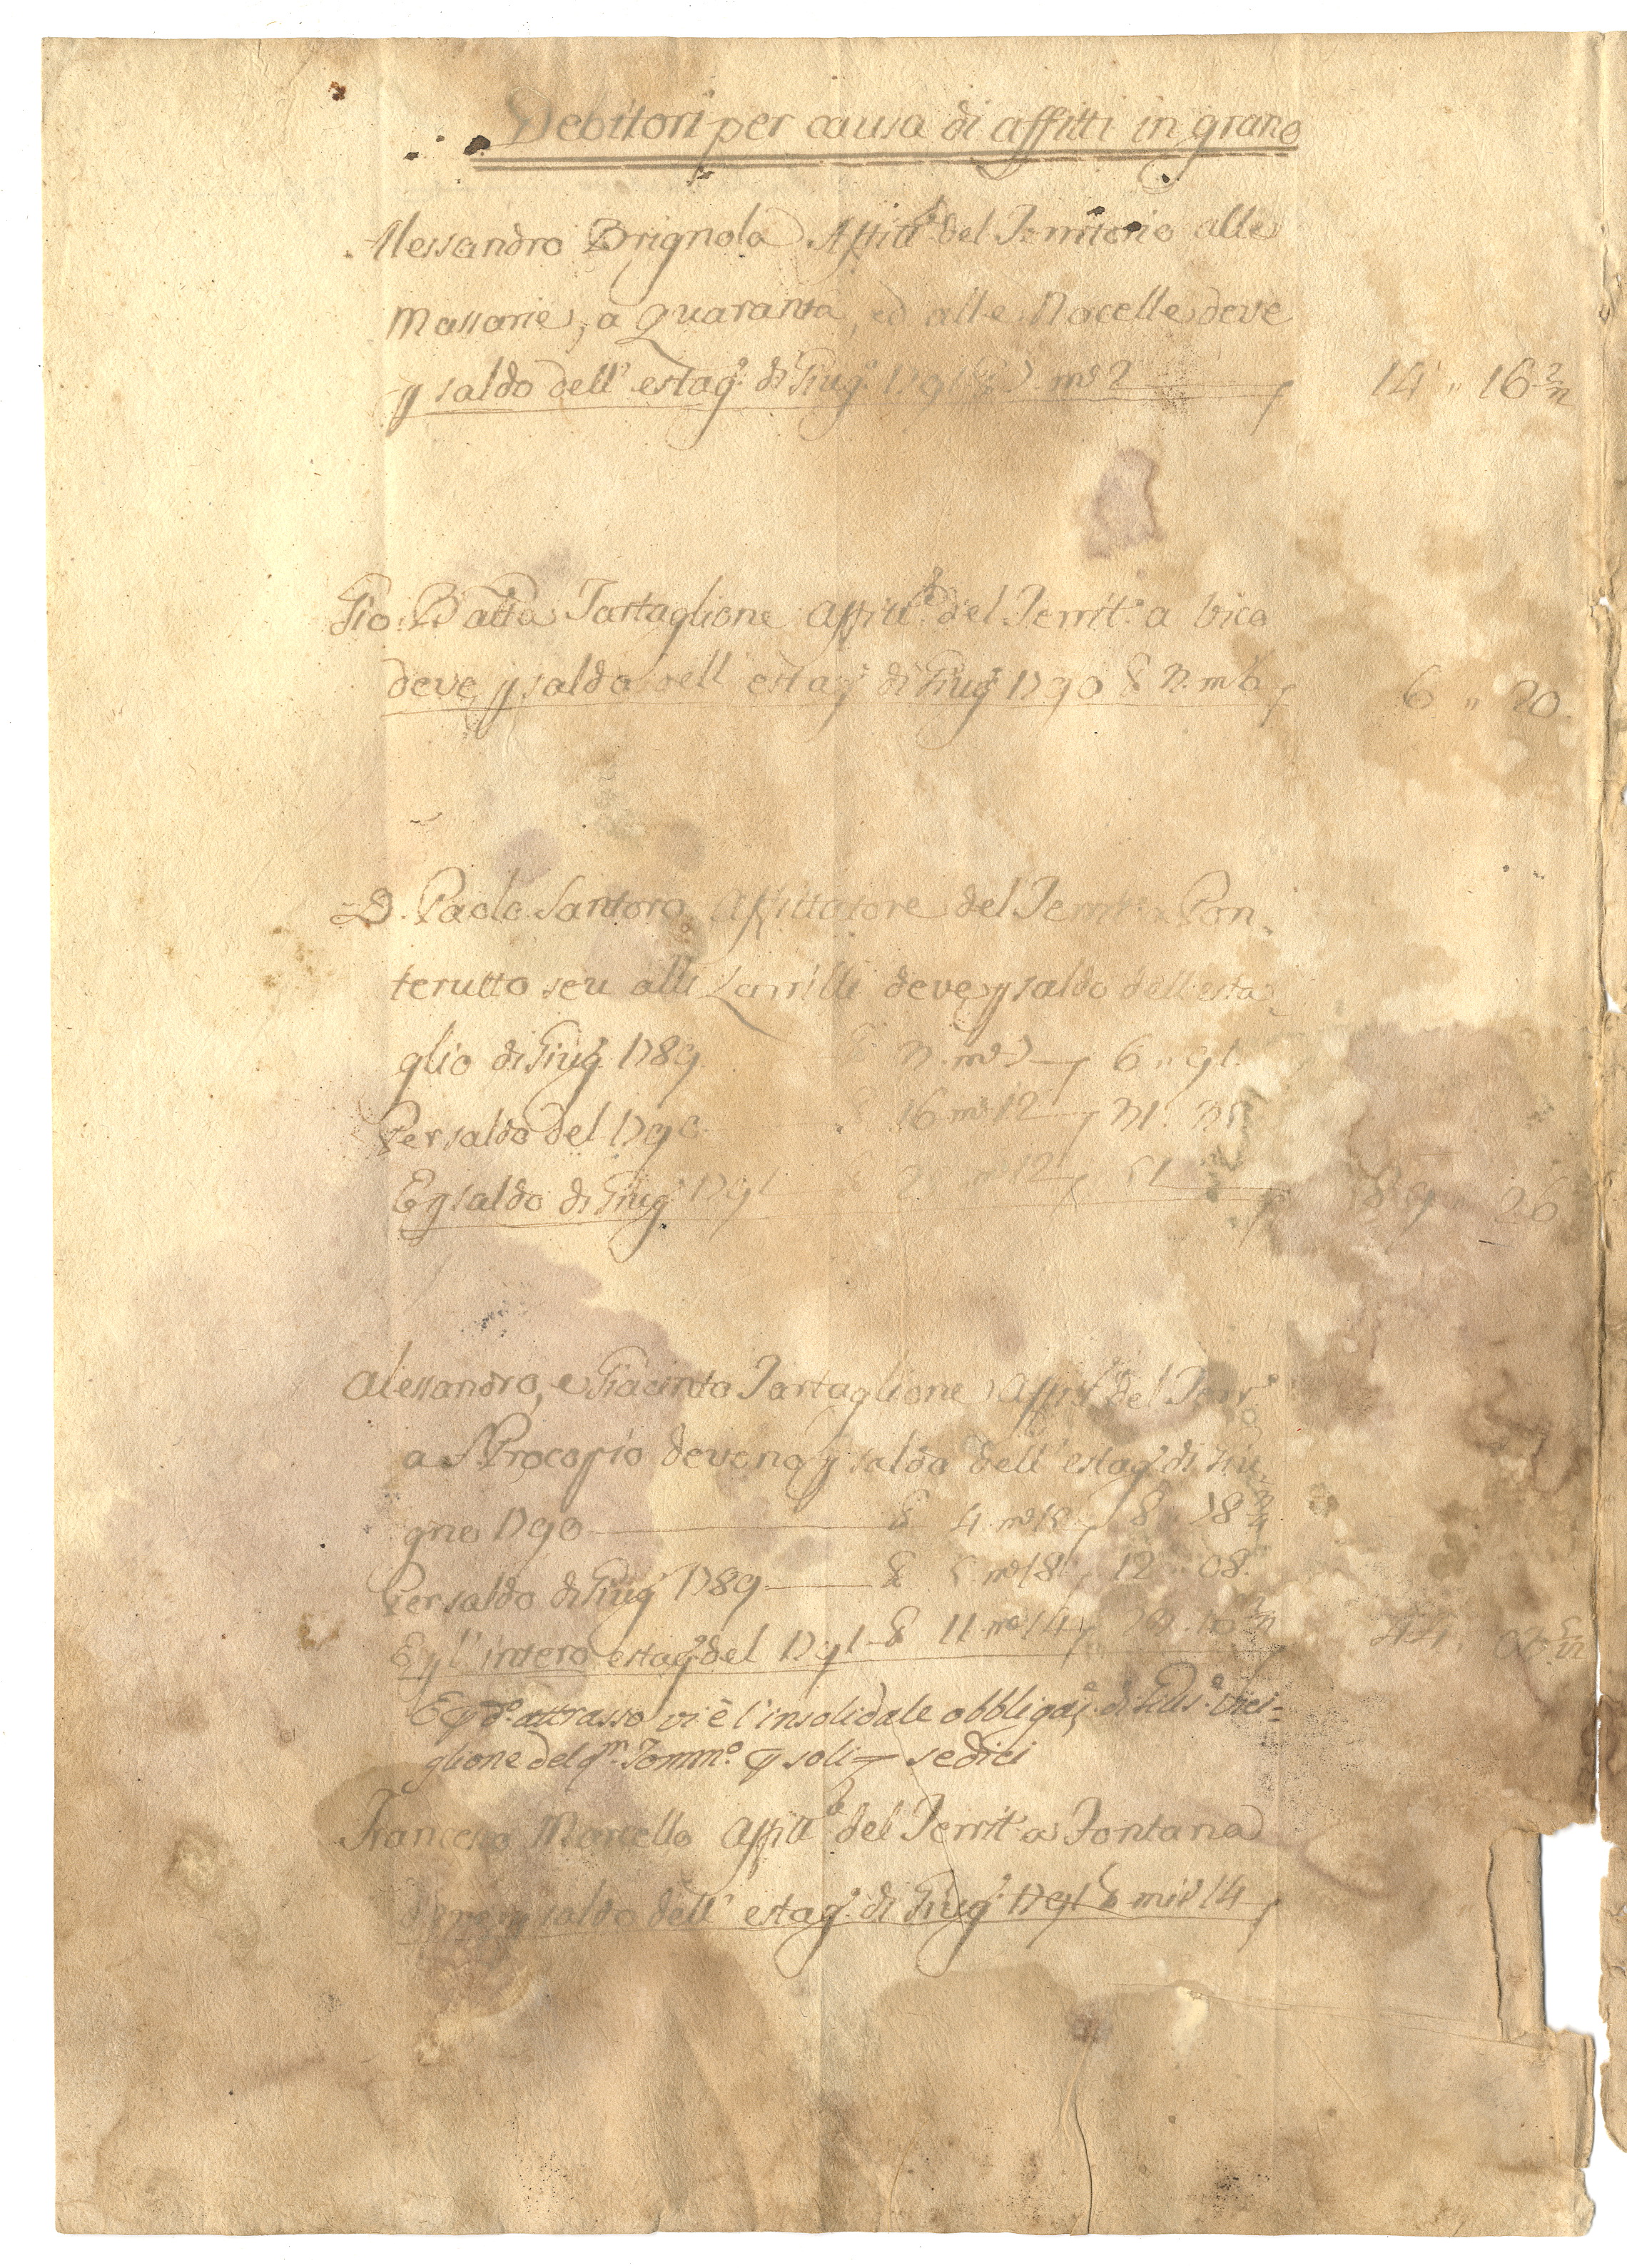 Debitori per causa di affitti in grano
Alessandro Brignola Affitt.e del Territorio alle
Massarie, a Quaranta, ed alle Nocelle deve
p saldo dell' estag.o di Giug.o 1791 7. m.a 2 14 " 16 2/3
Gio: Batta Tartaglione Affitt.e del Territ.o a Vico
deve p saldo dell' estag.o di Giug.o 1790 3. m 6 6 " 20
D. Paolo Santoro Affittatore del Territ.o a Pon
terutto seu alli deve p saldo dell' esta
glio di Giug.o 1789 3. m.a 7 6 " 91.
Per saldo del 1790 16 m.a 12 31. 35
E p saldo di Giug.o 1791 m.a 12 51 89 26
Alessandro, e Giacinto Tartaglione Affitt.i del Terr.o
a S. Procopio deveno p saldo dell' estag.o di Giu
gno 1790 4. m.a 18 8 " 78 3/4
Per saldo di Giug.o 1789 5. m.a 18 12 " 08.
E p l' intero estag.o del 1791 11. m.a 14 10 2/3 44. 5/12
E p d.o attrasso vi è l' insolidale obbligaz.e di
glione del q.m Tomm.o p soli sedici
Francesco Marcello Affitt.e del Territ.o a Fontana
deve p saldo dell' estag.o di Giug.o 1791 mis 14